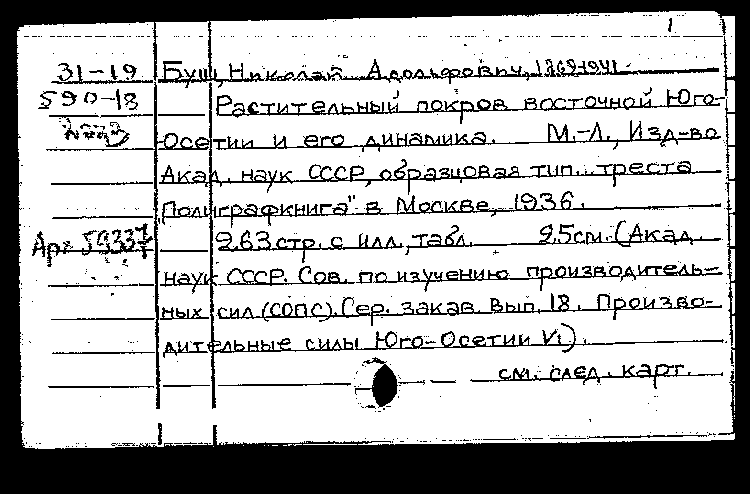 1
31-19 Буш, Николай Адольфович, 1869-1941.
590-18 Растительный покров восточной Юго-
Осетии и его динамика. М.-Л., Изд-во
Акад. наук СССР, образцовая тип. треста
"Полиграфкнига" в Москве, 1936.
263 стр. с илл., табл. 25см. (Акад.
наук СССР. Сов. по изучению производитель-
ных сил (СОПС). Сер. закав. Вып. 18. Произво-
дительные силы Юго-Осетии VI).
см. след. карт.